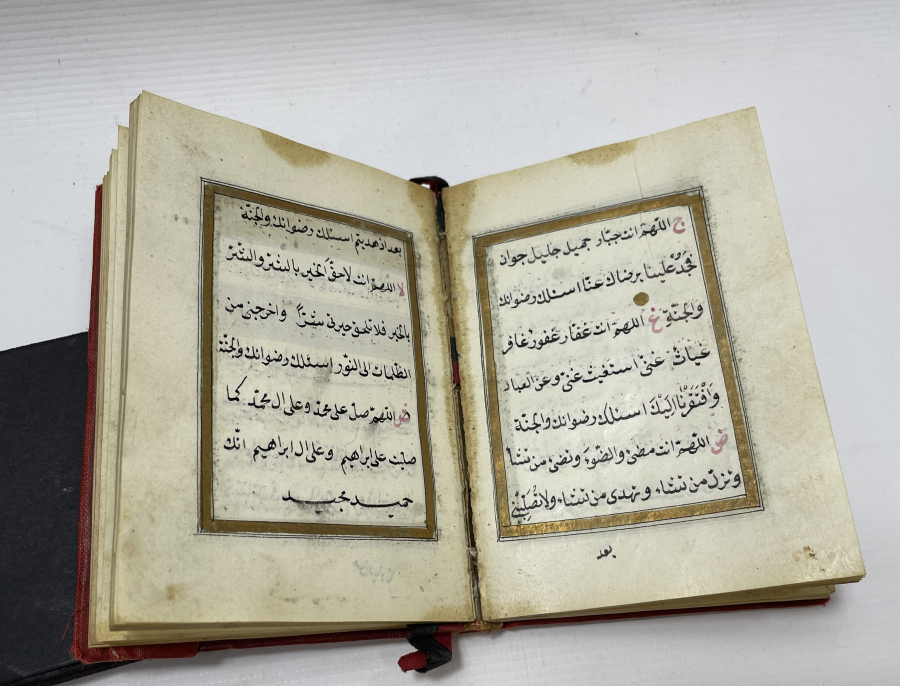 ج اللهم انت جبار جميل جليل جوان
فجد علينا برضاك عنا اسئلك رضوانك
والجنة غ اللهم انت غفار غفور غافر
غياث غنى استغيث غنى وعن العباد
وافتقرنا اليك اسئلك رضوانك والجنة
ض اللهم انت مضئ والضوء وتضئ من تشاء
من تشاء وتهدى من تشاء ولا
بعد
بعد اذ هديتم اسئلك رضوانك والجنة
لا اللهم انت لاحق الخير بالشر والشر
بالخير فلا تلحق خيرى شرا واخرجنى من
الظلمات الى النور اسئلك رضوانك والجنة
ض اللهم صل على محمد وعلى ال محمد كما
صليت على ابراهيم وعلى ال ابراهيم انك
حميد مجيد